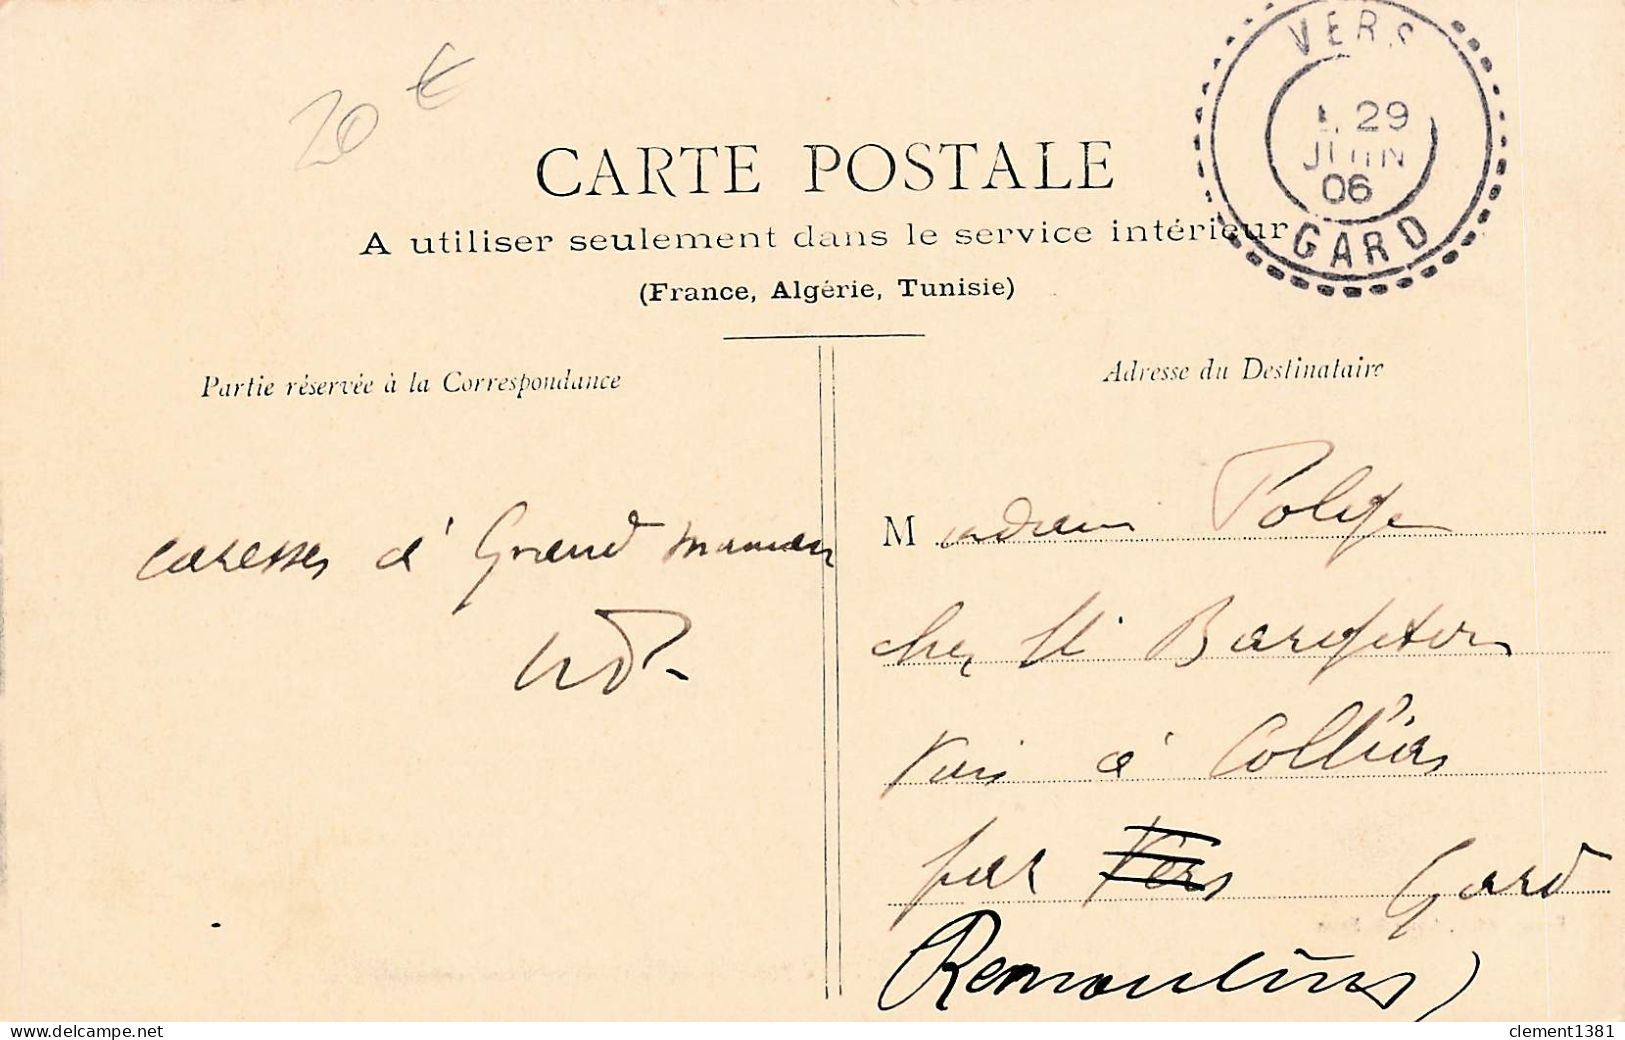 20 €
VERS
29
JUIN
06
GARD
CARTE POSTALE
A utiliser seulement dans le service intérieur
(France, Algérie, Tunisie)
Partie réservée à la Correspondance
Adresse du Destinataire
caresses à Grand maman
M adame Polge
chez
à Collias
par Vers Gard
Remoulins)
clement1381